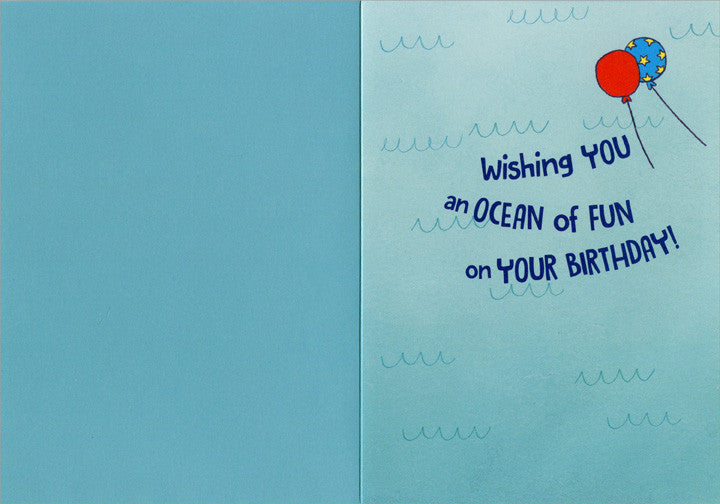 Wishing YOU
an OCEAN of FUN
on YOUR BIRTHDAY!